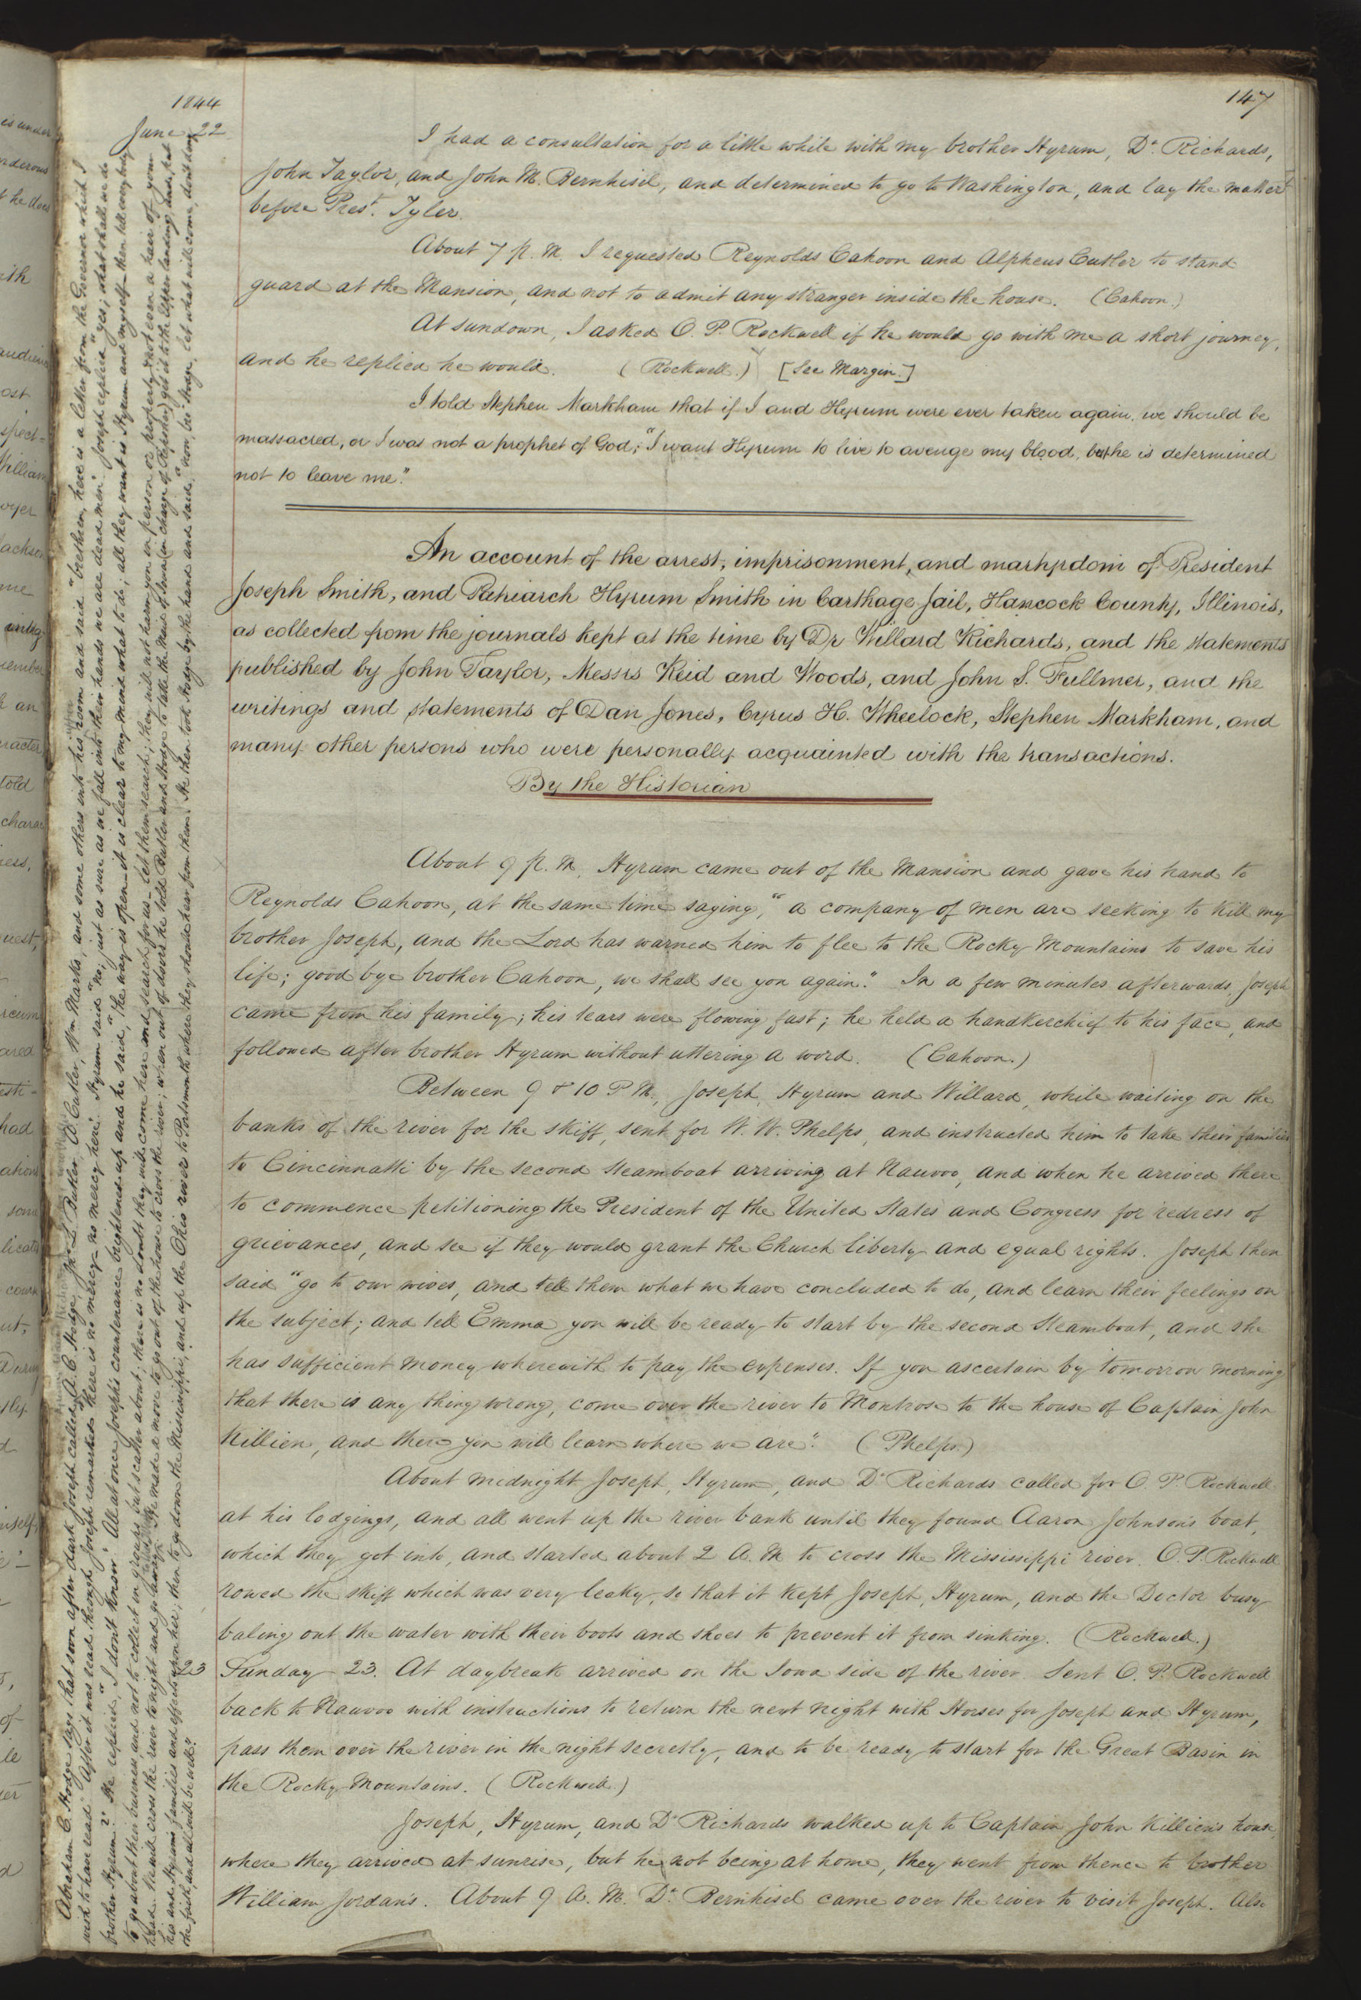 147
1844
June 22
I had a consultation for a little while with my brother Hyrum, Dr. Richards,
John Taylor, and John M. Bernhisel, and determined to go to Washington, and lay the matter
before Prest. Tyler.
About 7 p.m. I requested Reynolds Cahoon and Alpheus Cutler to stand
guard at the Mansion, and not to admit any stranger inside the house. (Cahoon.)
At sundown, I asked O. P. Rockwell if he would go with me a short journey,
and he replied he would. (Rockwell.) [See Margin.]
I told Stephen Markham that if I and Hyrum were ever taken again, we should be
massacred, or I was not a prophet of God; "I want Hyrum to live to avenge my blood, but he is determined
not to leave me."
An account of the arrest, imprisonment, and martyrdom of President
Joseph Smith, and Patriarch Hyrum Smith in Carthage Jail, Hancock County, Illinois,
as collected from the journals kept at the time by Dr Willard Richards, and the statements
published by John Taylor, Messrs Reid and Woods, and John S. Fullmer, and the
writings and statements of Dan Jones, Cyrus H. Wheelock, Stephen Markham, and
many other persons who were personally acquainted with the transactions.
By the Historian
About 9 p.m. Hyrum came out of the Mansion and gave his hand to
Reynolds Cahoon, at the same time saying, "a company of men are seeking to kill my
brother Joseph, and the Lord has warned him to flee to the Rocky Mountains to save his
life; good bye brother Cahoon, we shall see you again." In a few minutes afterwards, Joseph
came from his family; his tears were flowing fast; he held a handkerchief to his face, and
followed after brother Hyrum without uttering a word. (Cahoon.)
Between 9 & 10 P.M., Joseph, Hyrum and Willard, while waiting on the
banks of the river for the skiff, sent for W. W. Phelps, and instructed him to take their families
to Cincinnatti by the second steamboat arriving at Nauvoo, and when he arrived there
to commence petitioning the President of the United States and Congress for redress of
grievances, and see if they would grant the Church liberty and equal rights. Joseph then
said "go to our wives, and tell them what we have concluded to do, and learn their feelings on
the subject; and tell Emma you will be ready to start by the second Steamboat, and she
has sufficient money wherewith to pay the expenses. If you ascertain by tomorrow morning
that there is any thing wrong, come over the river to Montrose to the house of Captain John
Killien, and there you will learn where we are". (Phelps)
About midnight Joseph, Hyrum, and Dr Richards called for O. P. Rockwell
at his lodgings, and all went up the river bank until they found Aaron Johnson's boat,
which they got into, and started about 2 A.M. to cross the Mississippi river. O. P. Rockwell
rowed the skiff which was very leaky, so that it kept Joseph, Hyrum, and the Doctor busy
baling out the water with their boots and shoes to prevent it from sinking. (Rockwell.)
23
Sunday 23. At daybreak arrived on the Iowa side of the river. Sent O. P. Rockwell
back to Nauvoo with instructions to return the next night with Horses for Joseph and Hyrum,
pass them over the river in the night secretly, and to be ready to start for the Great Basin in
the Rocky Mountains. (Rockwell.)
Joseph, Hyrum, and Dr Richards walked up to Captain John Killien's house
where they arrived at sunrise, but he not being at home, they went from thence to brother
William Jordan's. About 9 A.M. Dr. Bernhisel came over the river to visit Joseph. Also
Abraham C. Hodge says that soon after dark Joseph called A. C. Hodge, Jno. L. Butler, A. Cutler, Wm. Marks, and some others into his upper room and said "brethren, here is a letter from the Governor which I
wish to have read" After it was read through, Joseph remarked "there is no mercy— no mercy here". Hyrum said "no; just as sure as we fall into their hands we are dead men". Joseph replied "yes; what shall we do
brother Hyrum?" He replied, "I don't know". All at once Joseph's countenance brightened up and he said, "the way is open— it is clear to my mind what to do; all they want is Hyrum and myself— then tell every body
to go about their business and not to collect in groups but scatter about; there is no doubt they will come here and search for us— let them search; they will not harm you in person or property & not even a hair of your
head. We will cross the river tonight and go away". He made a move to go out of the house to cross the river; when out of doors he told Butler and Hodge to take the Maid of Iowa (in charge of Repsher) get it to the upper landing, and put
his and Hyrum's families and effects upon her; then to go down the Mississippi, and up the Ohio river to Portsmouth where they should hear from them. He then took Hodge by the hand and said, "now, bro Hodge, let what will come, don't deny
the faith, and all will be well."